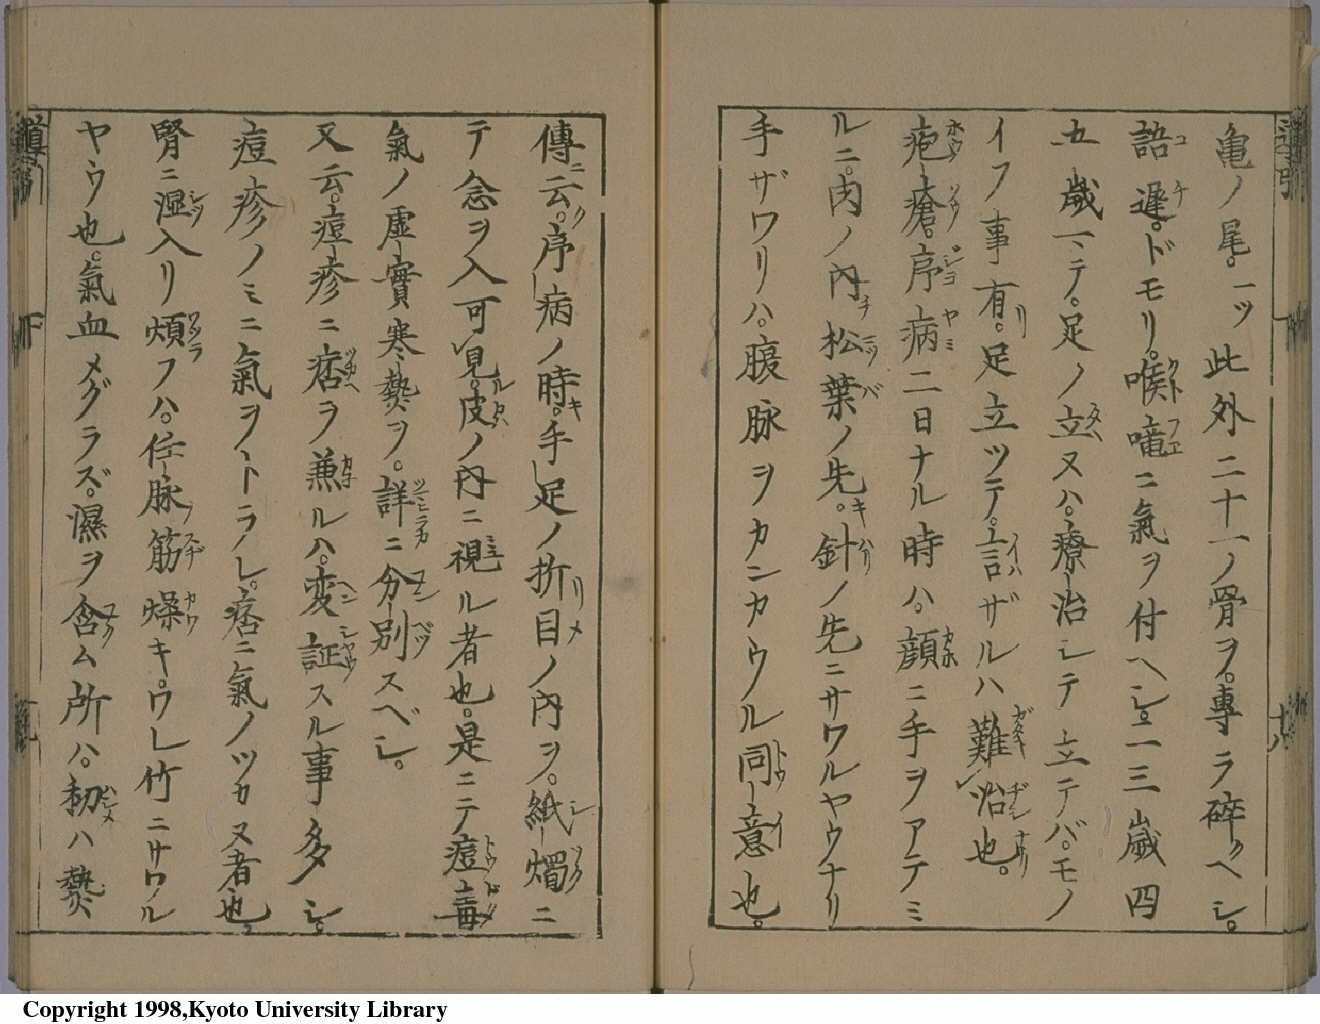 亀ノ尾。一ツ此外二十一ノ骨ヲ。專ラ碎クヘシ。
語遅。ドモリ。喉竜ニ氣ヲ付ヘシ。二三歳四
五歳ニテ。足ノ立ヌハ。療治シテ立テバ。モノ
イフ事有リ。足立ツテ。言ザルハ難治也。
疱瘡。序病二日ナル時ハ。顔ニ手ヲアテミ
ルニ。内ノ内松葉ノ先キ。針ノ先ニサワルヤウナリ
手ザワリハ。腹脉ヲカンカウル同意也。
傳ニ云ク。序病ノ時キ。手足ノ折目ノ内ヲ。紙燭ニ
テ念ヲ入可見ル。皮ノ内ニ視ル者也。是ニテ痘毒
氣ノ虚實寒𤍠ヲ。詳ニ分別スベシ。
又云。痘疹ニ痞ヲ兼ルハ。変証スル事多シ。
痘疹ノミニ氣ヲトラレ。痞ニ氣ノツカヌ者也。
腎ニ湿入リ煩フハ。任脉ノ筋燥キ。ワレ竹ニサワル
ヤウ也。氣血メグラズ。濕ヲ含ム所ハ。初ハ𤍠
導引
下
十八
Copyright 1998,Kyoto University Library